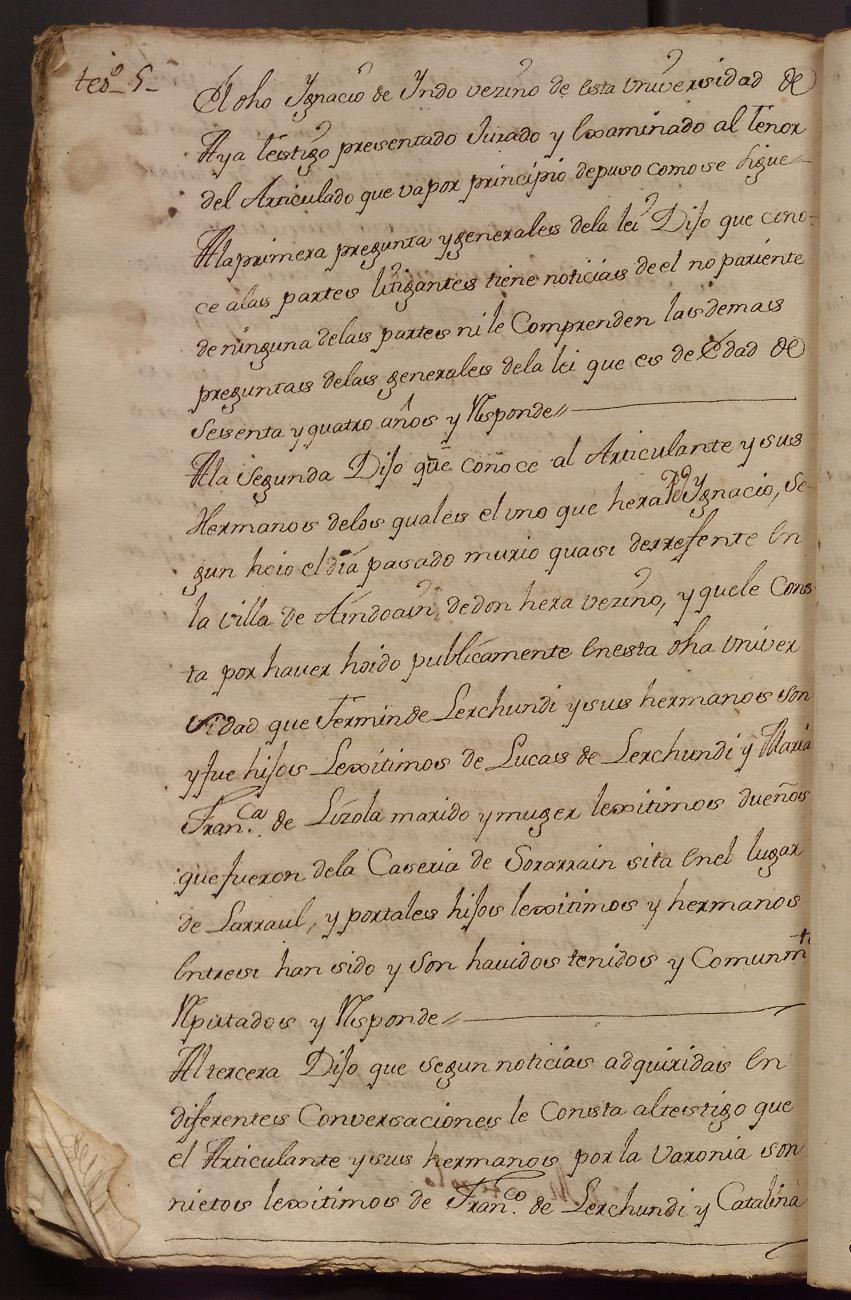 tgo. 5_
El dho Ygnacio de Yndo vezino de esta Universidad de
Aya testigo presentado Jurado y examinado al tenor
del Articulado que va por principio depuso como se sigue
A la primera pregunta y generales de la lei Dijo que cono-
ce a las partes litigantes tiene noticias de el no pariente
de ninguna de las partes ni le Comprenden las demas
preguntas de las generales de la lei que es de Edad de
sesenta y quatro años y Responde
A la segunda Dijo que conoce al Articulante y sus
Hermanos de los quales el uno que hera Ygnacio, Se-
gun hoio el dia pasado murio quasi derrefente en
la villa de Aindoain, de don hera vezino, y que le Cons
ta por haver hoido publicamente en esta dha Univer
sidad que Fermin de Lerchundi y sus hermanos son
y fue hijos Lexitimos de Lucas de Lerchundi y Maria
Fran.ca de Lizola marido y muger lexitimos dueños
que fueron de la Caseria de Sorarrain sita en el lugar
de Larraul, y por tales hijos lexitimos y hermanos
entresi han sido y son havidos tenidos y Comunmte
Rputados y Responde
Al tercera Dijo que segun noticias adquiridas en
diferentes Conversaciones le Consta al testigo que
el Articulante y sus hermanos por la Varonia son
nietos lexitimos de Fran.co de Lerchundi y Catalina